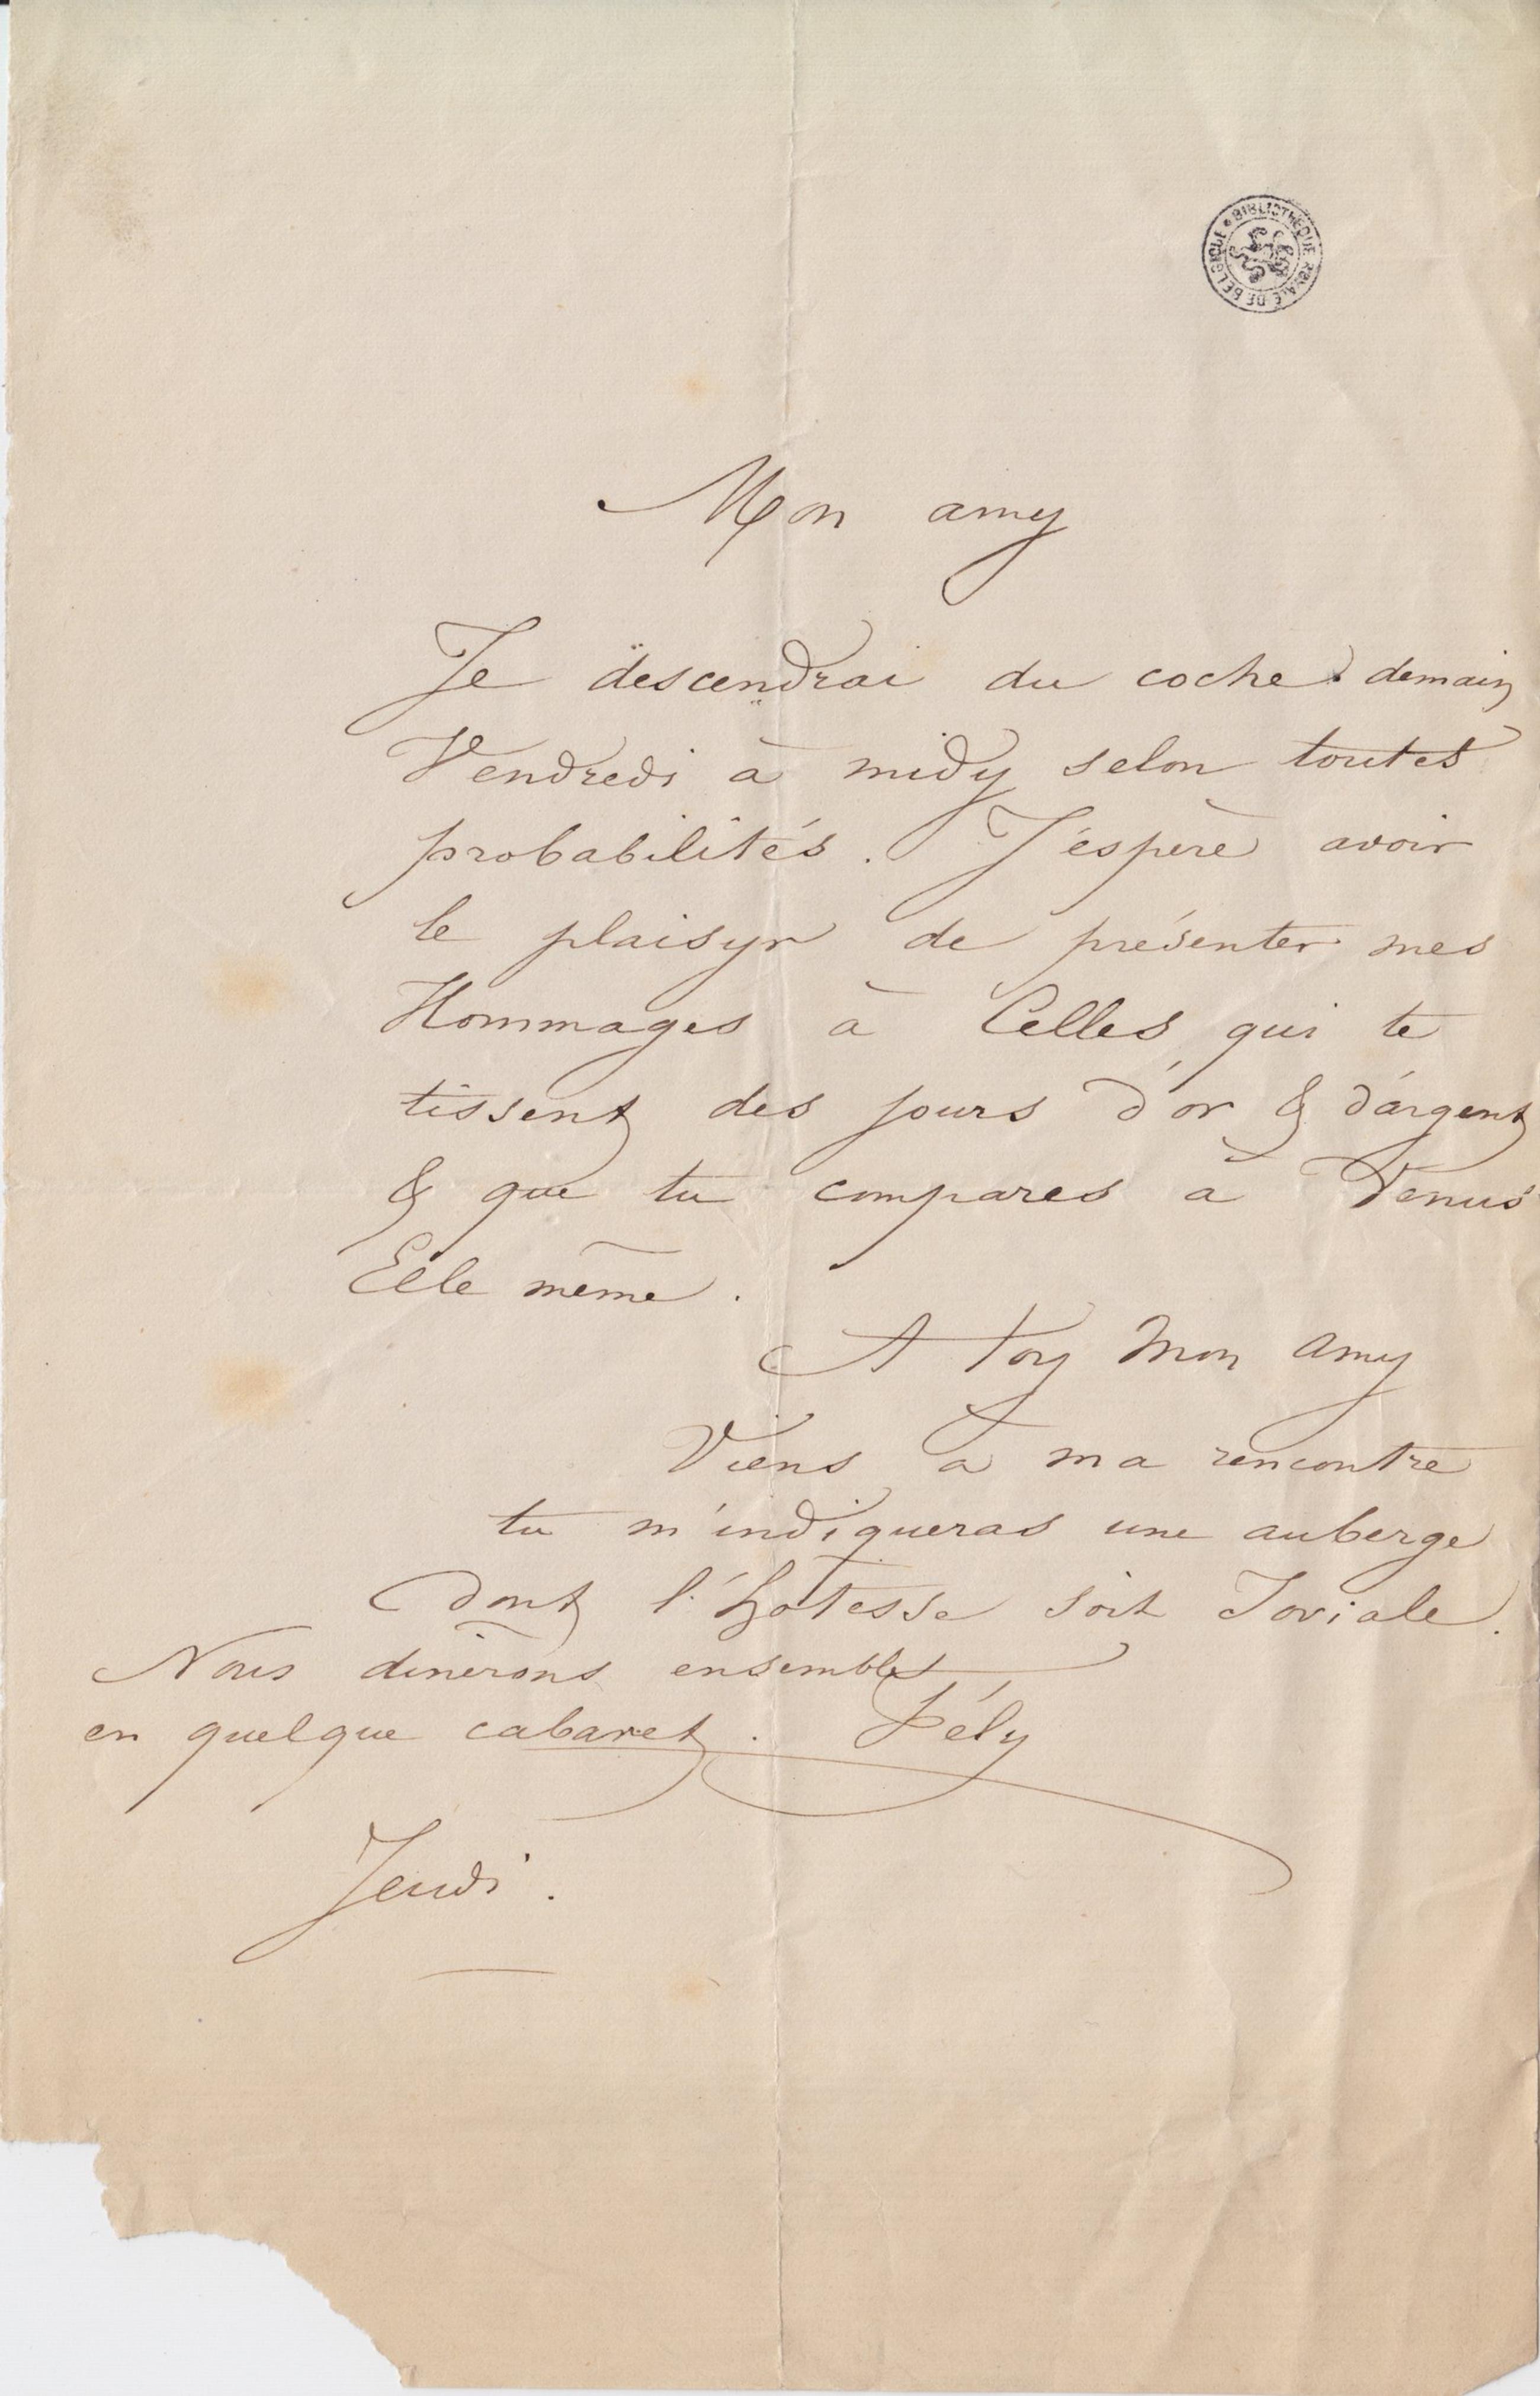 BIBLIOTHEQUE ROYALE DE BELGIQUE
Mon amy
Je descendrai du coche demain
Vendredi à midy selon toutes
probabilités. J'espère avoir
le plaisyr de présenter mes
Hommages à Celles qui te
tissent des jours d'or & d'argent
& que tu compares à Venus
Elle même.
A toy Mon amy
Viens à ma rencontre
tu m'indiqueras une auberge
dont l'hôtesse soit Joviale.
Nous dinerons ensembles
en quelque cabaret. Fély
Jeudi.